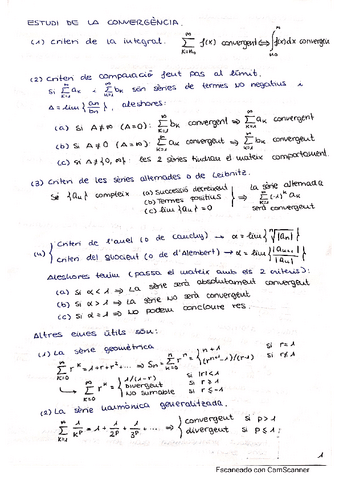 ESTUDI DE LA CONVERGÈNCIA.
(1) Criteri de la integral. ∑_{k=k₀}^{∞} f(k) convergent ⟺ ∫_{k₀}^{∞} f(x)dx convergeix
(2) Criteri de comparació fent pas al límit.
Si ∑_{k=1}^{∞} a_k i ∑_{k=1}^{∞} b_k són sèries de termes NO negatius i
A = lim { a_n / b_n }, aleshores:
(a) Si A ≠ ∞ (A=0): ∑_{k=1}^{∞} b_k convergent ⟹ ∑_{k=1}^{∞} a_k convergent
(b) Si A ≠ 0 (A=∞): ∑_{k=1}^{∞} a_k convergent ⟹ ∑_{k=1}^{∞} b_k convergent
(c) Si A ≠ {0, ∞}: les 2 sèries tindran el mateix comportament.
(3) Criteri de les sèries alternades o de Leibnitz.
Si {a_n} compleix
(a) Successió decreixent
(b) Termes positius
(c) lim {a_n} = 0
⟹ la sèrie alternada
∑_{k=1}^{∞} (-1)^k a_k
serà convergent
(4) { Criteri de l'arrel (o de Cauchy) → α = lim { ⁿ√|a_n| }
Criteri del quocient (o de d'Alembert) → α = lim { |a_{n+1}| / |a_n| }
Aleshores tenim (passa el mateix amb els 2 criteris):
(a) Si α < 1 ⟹ La sèrie serà absolutament convergent
(b) Si α > 1 ⟹ La sèrie NO serà convergent
(c) Si α = 1 ⟹ NO podem concloure res.
Altres eines útils són:
(1) La sèrie geomètrica
∑_{k=0}^{∞} r^k = 1+r+r²+... ⟹ S_n = ∑_{k=0}^{n} r^k = { n+1 si r=1
(r^{n+1}-1)/(r-1) si r≠1
∑_{k=0}^{∞} r^k = { 1/(1-r) si |r|<1
divergent si r ≥ 1
NO sumable si r ≤ -1
(2) La sèrie harmònica generalitzada.
∑_{k=1}^{∞} 1/k^p = 1 + 1/2^p + 1/3^p + ... ⟹ { convergent si p > 1
divergent si p ≤ 1
1
Escaneado con CamScanner